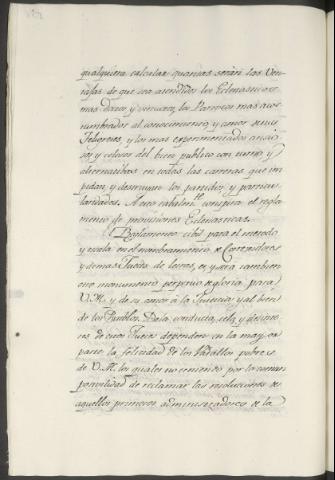 qualquiera calcular quantas serán las Ven-
tajas de que sea atendidos los Eclesiasticos
mas doctos, y virtuosos, los Parrocos mas acos-
tumbrados al conocimiento, y amor de sus
feligreses, y los mas experimentados ancia-
nos y celosos del bien publico con turno, y
alternatiba en todas las carreras que im-
pidan, y destruyan los partidos, y particu-
laridades. A esto cabalm.te conspira el regla-
mento de provisiones Eclesiasticas.
Reglamento citado para el metodo
y escala en el nombramiento de Corregidores
y demas Jueces de letras, es, y sera tambien
otro monumento perpetuo de gloria para
V. M. y de su amor à la Justicia, y al bien
de los Pueblos. De la conducta, zelo, y desinte-
res de estos Jueces dependen en la may.or
parte la felicidad de los Vasallos pobres
de V. M. los quales no teniendo por lo comun
posivilidad de reclamar las resoluciones de
aquellos primeros administradores de la